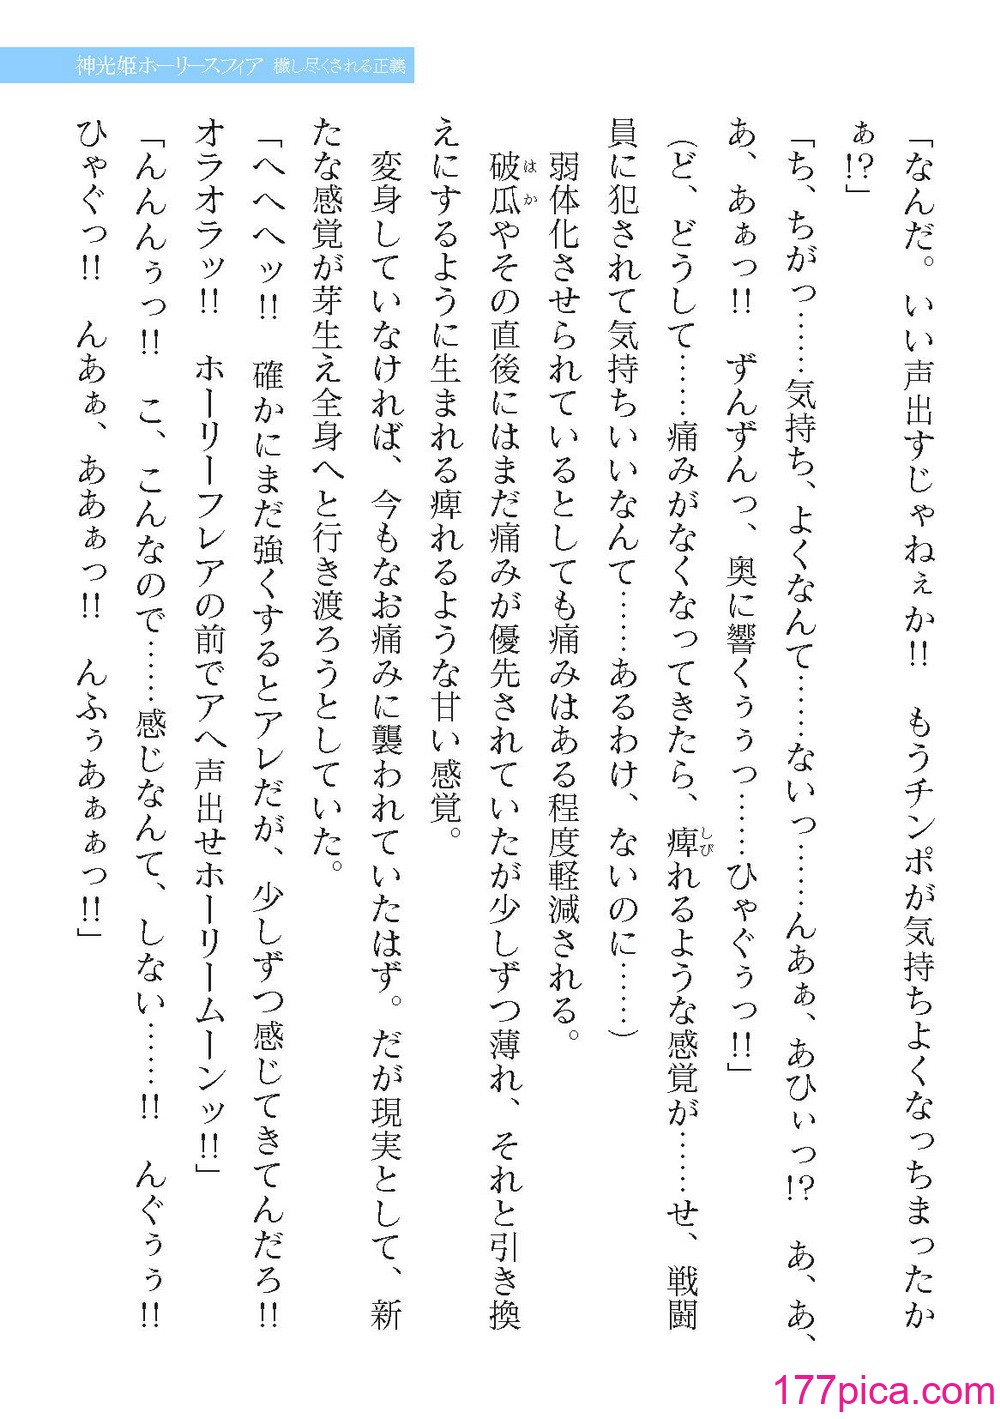 神光姫ホーリースフィア 穢し尽くされる正義
「なんだ。いい声出すじゃねぇか!! もうチンポが気持ちよくなっちまったか
ぁ!?」
「ち、ちがっ……気持ち、よくなんて……ないっ……んあぁ、あひぃっ!? あ、あ、
あ、あぁっ!! ずんずんっ、奥に響くぅぅっ……ひゃぐぅっ!!」
(ど、どうして……痛みがなくなってきたら、痺れるような感覚が……せ、戦闘
しび
員に犯されて気持ちいいなんて……あるわけ、ないのに……)
弱体化させられているとしても痛みはある程度軽減される。
破瓜やその直後にはまだ痛みが優先されていたが少しずつ薄れ、それと引き換
はか
えにするように生まれる痺れるような甘い感覚。
変身していなければ、今もなお痛みに襲われていたはず。だが現実として、新
たな感覚が芽生え全身へと行き渡ろうとしていた。
「へへへッ!! 確かにまだ強くするとアレだが、少しずつ感じてきてんだろ!!
オラオラッ!! ホーリーフレアの前でアへ声出せホーリームーンッ!!」
「んんんぅっ!! こ、こんなので……感じなんて、しない……!! んぐぅぅ!!
ひゃぐっ!! んあぁ、ああぁっ!! んふぅあぁぁっ!!」
177pica.com